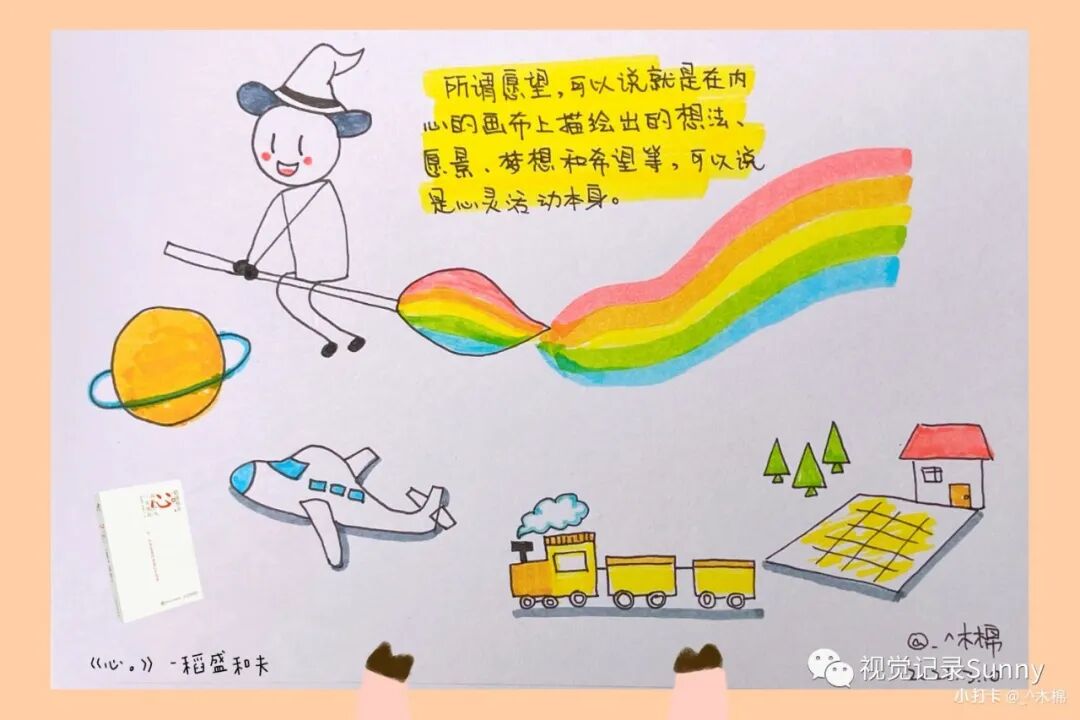 所谓愿望,可以说就是在内
心的画布上描绘出的想法、
愿景、梦想和希望等,可以说
是心灵活动本身。
心
《心。》-稻盛和夫
@_^木棉
视觉记录Sunny
小打卡@_^木棉